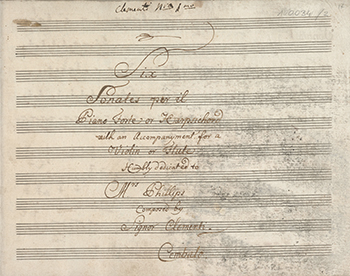 Clementi
Six
Sonates per il
Piano Forte or Harpsichord
with an Accompanyment for a
Violin or Flute
Humbly dedicated to
Mrs Phillips
Composed by
Signor Clementi.
Cembalo